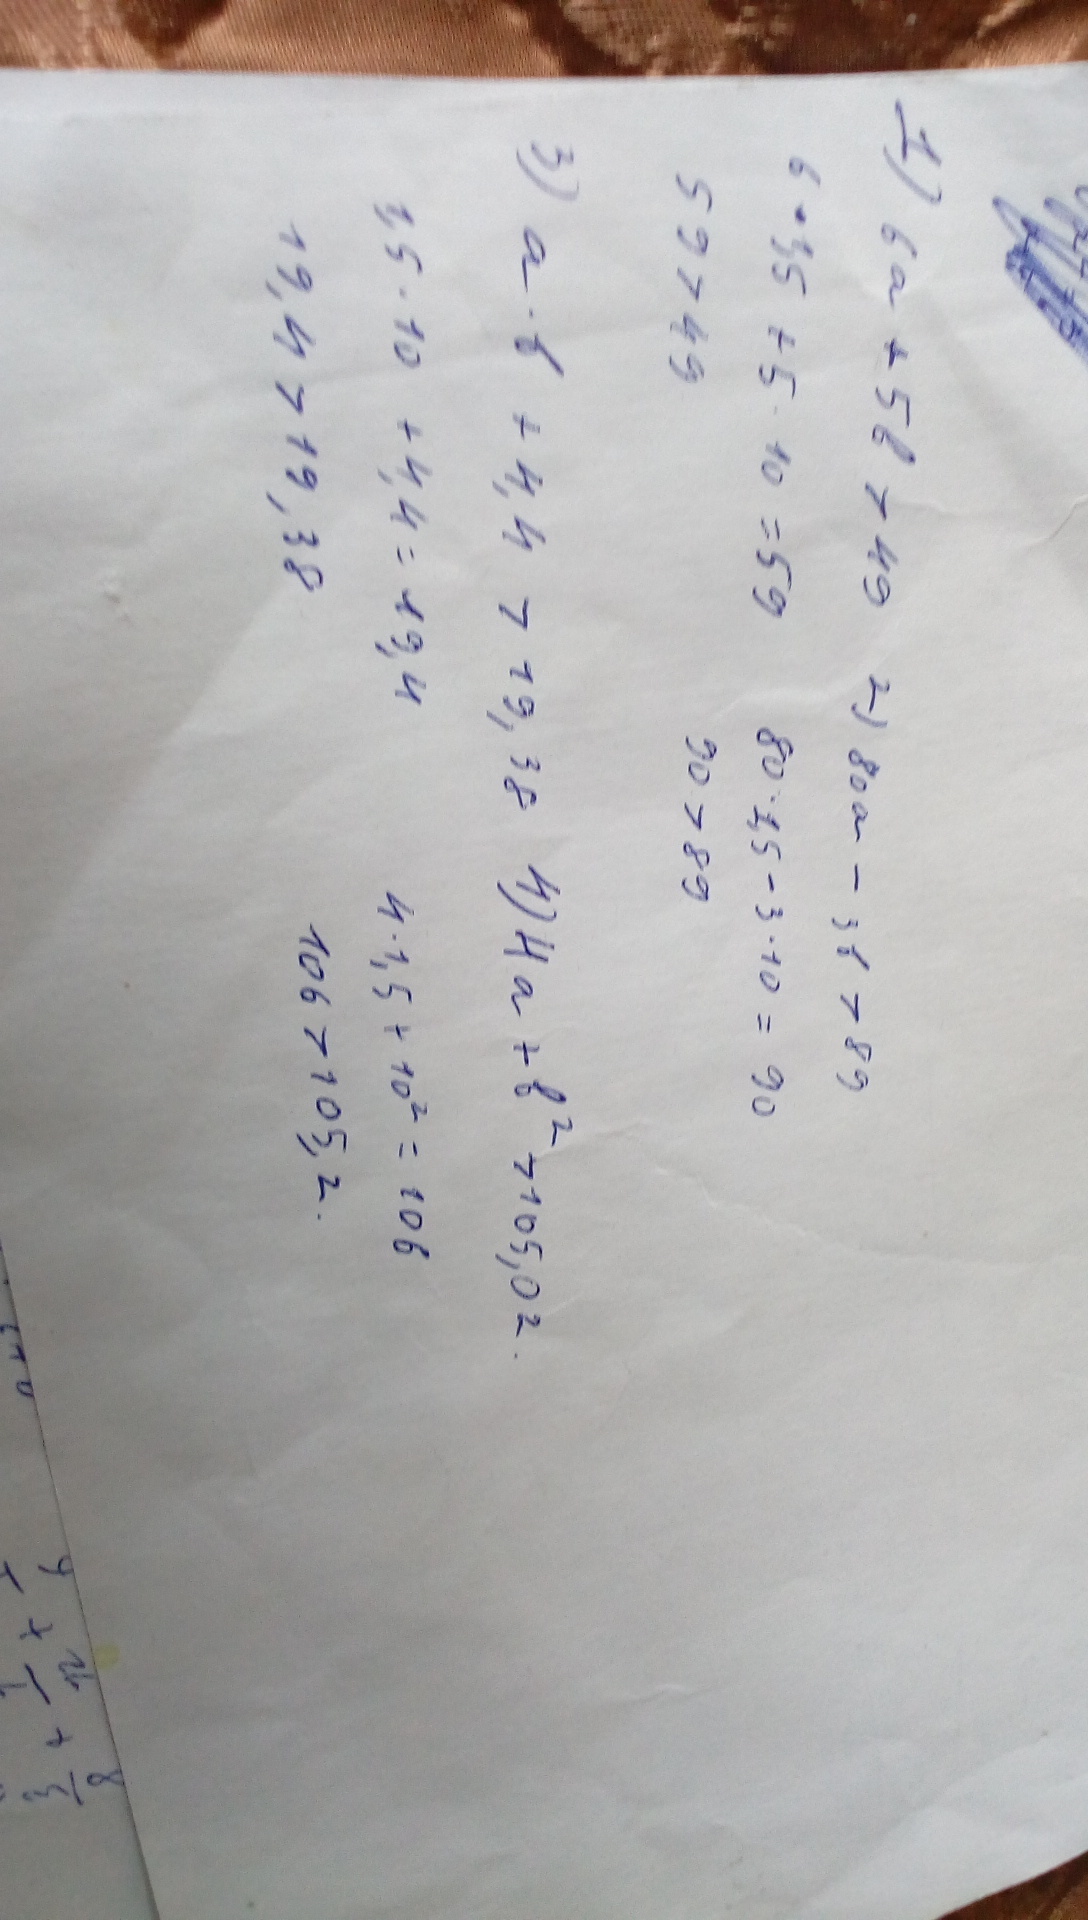 1) 6a + 5b > 49 2) 80a - 3b > 89
6 · 1,5 + 5 · 10 = 59 80 · 1,5 - 3 · 10 = 90
59 > 49 90 > 89
3) a · b + 4,4 > 19,38 4) 4a + b² > 105,02.
1,5 · 10 + 4,4 = 19,4 4 · 1,5 + 10² = 106
19,4 > 19,38 106 > 105,2.